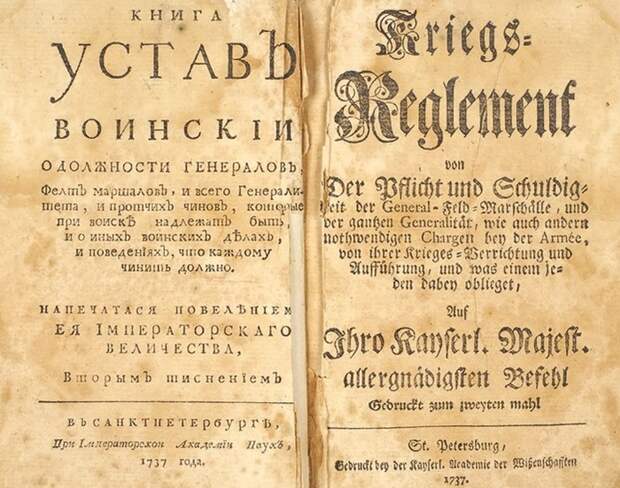 КНИГА
УСТАВЪ
ВОИНСКІИ
О ДОЛЖНОСТИ ГЕНЕРАЛОВЪ,
Фелтъ маршаловъ, и всего Генерали-
тета, и протчихъ чиновъ, которые
при воискѣ надлежатъ быть,
и о иныхъ воинскихъ дѣлахъ,
и поведенїяхъ, что каждому
чинить должно.
НАПЕЧАТАСЯ ПОВЕЛѢНІЕМЪ
ЕЯ ІМПЕРАТОРСКАГО
ВЕЛИЧЕСТВА,
Вторымъ тисненїемъ
ВЪ САНКТПЕТЕРБУРГѢ,
При Імператорскои Академїи Наукъ,
1737 года.
Kriegs-
Reglement
von
Der Pflicht und Schuldig-
keit der General-Feld-Marschälle, und
der gantzen Generalität, wie auch andern
nothwendigen Chargen bey der Armée,
von ihrer Krieges-Verrichtung und
Aufführung, und was einem je-
den dabey oblieget,
Auf
Ihro Kayserl. Majest.
allergnädigsten Befehl
Gedruckt zum zweyten mahl
St. Petersburg,
Gedruckt bey der Kayserl. Academie der Wißenschafften
1737.